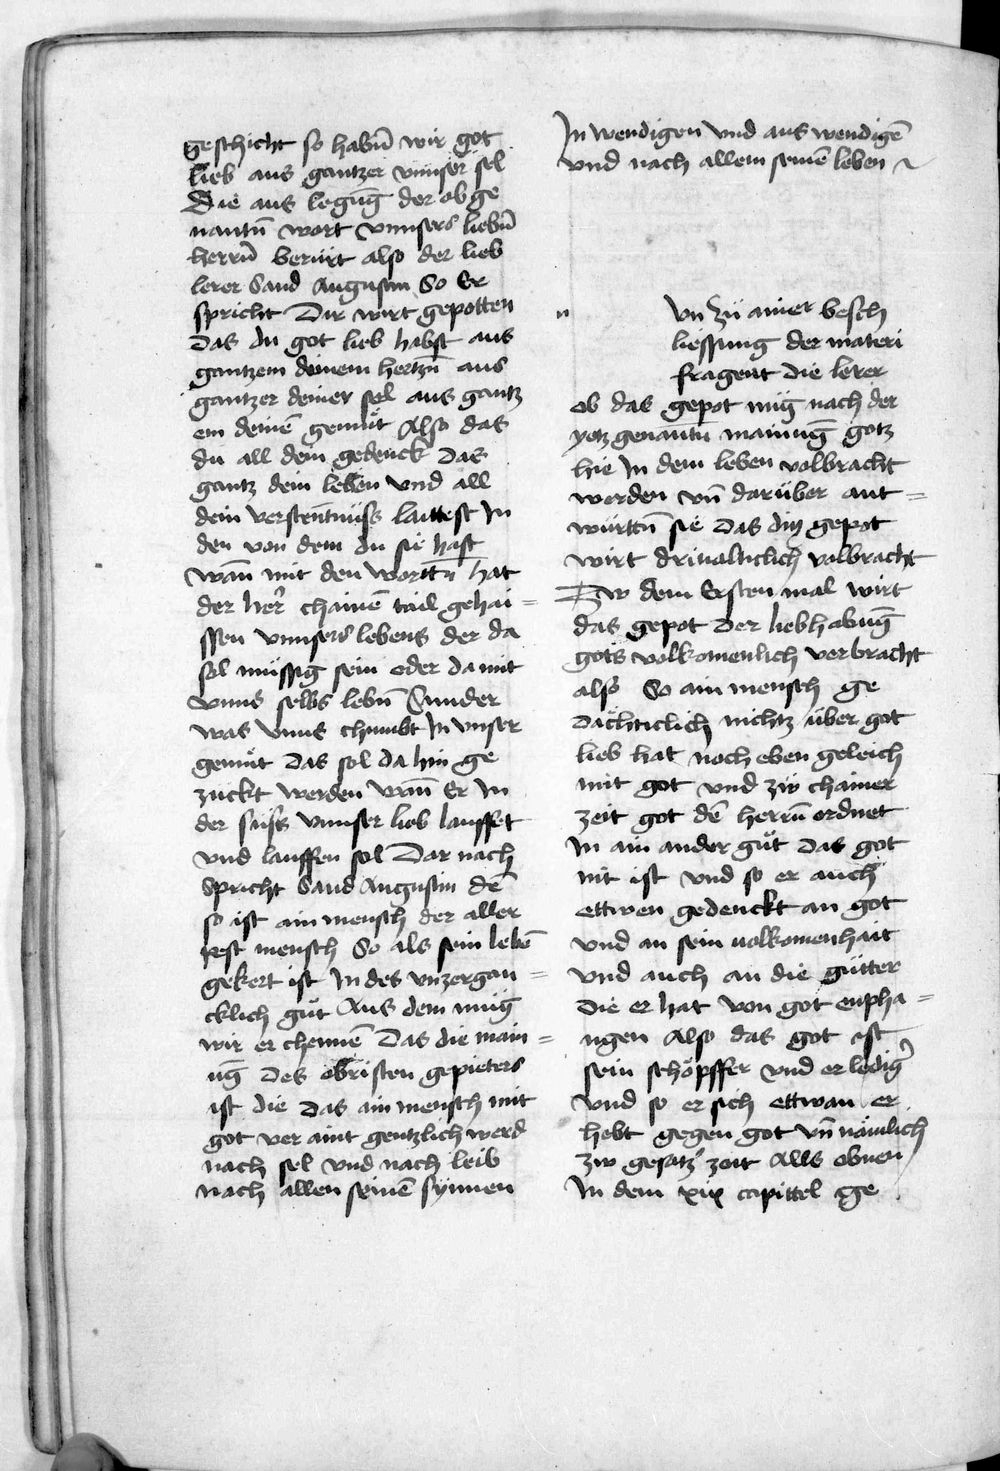 geschicht so habñ wir got
lieb aus gantzer vnnser sel
Die aus legūg der ob ge
nantñ wort vnnsers liebñ
herrñ berürt also der lieb
lerer Sand Augustin So Er
spricht Dir wirt gepotten
Das du got lieb habst aus
gantzem deinem hertzñ aus
gantzer deiner sel aus gantz
em deinē gemüt Also das
du all dein gedenck Das
gantz dem leben vnd all
dein verstentnüss laittest In
den von dem du sie hast
wañ mit den worttñ hat
der her chainē tail gehai=
ssen vnnsers lebens der da
sol müssig sein oder da mit
vnns selbs lebñ Sunder
was vnns chumbt In vnser
gemüt Das sol da hin ge
zuckt werden wañ Er In
der süss vnnser lieb lauffet
vnd lauffen sol Dar nach
Spricht Sand Augustin dē
so ist ain mensch der aller
pest mensch So als sein lebē
gekert ist In des vnzergan=
cklich güt Aus dem müg
wir er chennē Das die main=
ūg Des öbristen gepieters
ist die Das ain mensch mit
got ver aint gentzlich werd
nach sel vnd nach leib
nach allen seinē synnen
In wendigen vnd aus wendigē
vnd nach allem seinē leben
n
Vn zü ainer besch
liessung der materi
fragent die lerer
ob das gepot müg nach der
yetz genantñ mainūg gotz
hie In dem leben volbracht
werden vñ darüber ant=
württñ sie Das ditz gepot
wirt driualticlich volbracht
Zw dem Ersten mal wirt
das gepot Der liebhabūg
gots volkomenlich verbracht
also So ain mensch ge
dächticlich nichtz über got
lieb hat noch eben geleich
mit got vnd zw chainer
zeit got dē herrñ ordnet
In ain ander güt Das got
nit ist vnd so er auch
ettwen gedenckt an got
vnd an sein uolkomenhait
vnd auch an die gütter
die er hat von got enpha=
ngen Also das got ist
sein schöpffer vnd erlediger
vnd so er sich ettwan er
hebt gegen got vñ nämlich
zw gesatzer zeit Alls obnen
In dem xix capittel ge